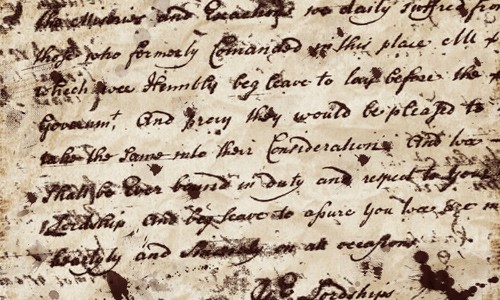 the and we daily suffred from
those who formerly Comanded in this place All
which wee Humbly beg leave to lay before the
Governmt, And pray they would be pleased to
take the Same into their Consideration And wee
Shall be Ever bound in duty and respect to Your
Lordship And beg leave to assure You wee are
heartyly and on all occasions
Lordships